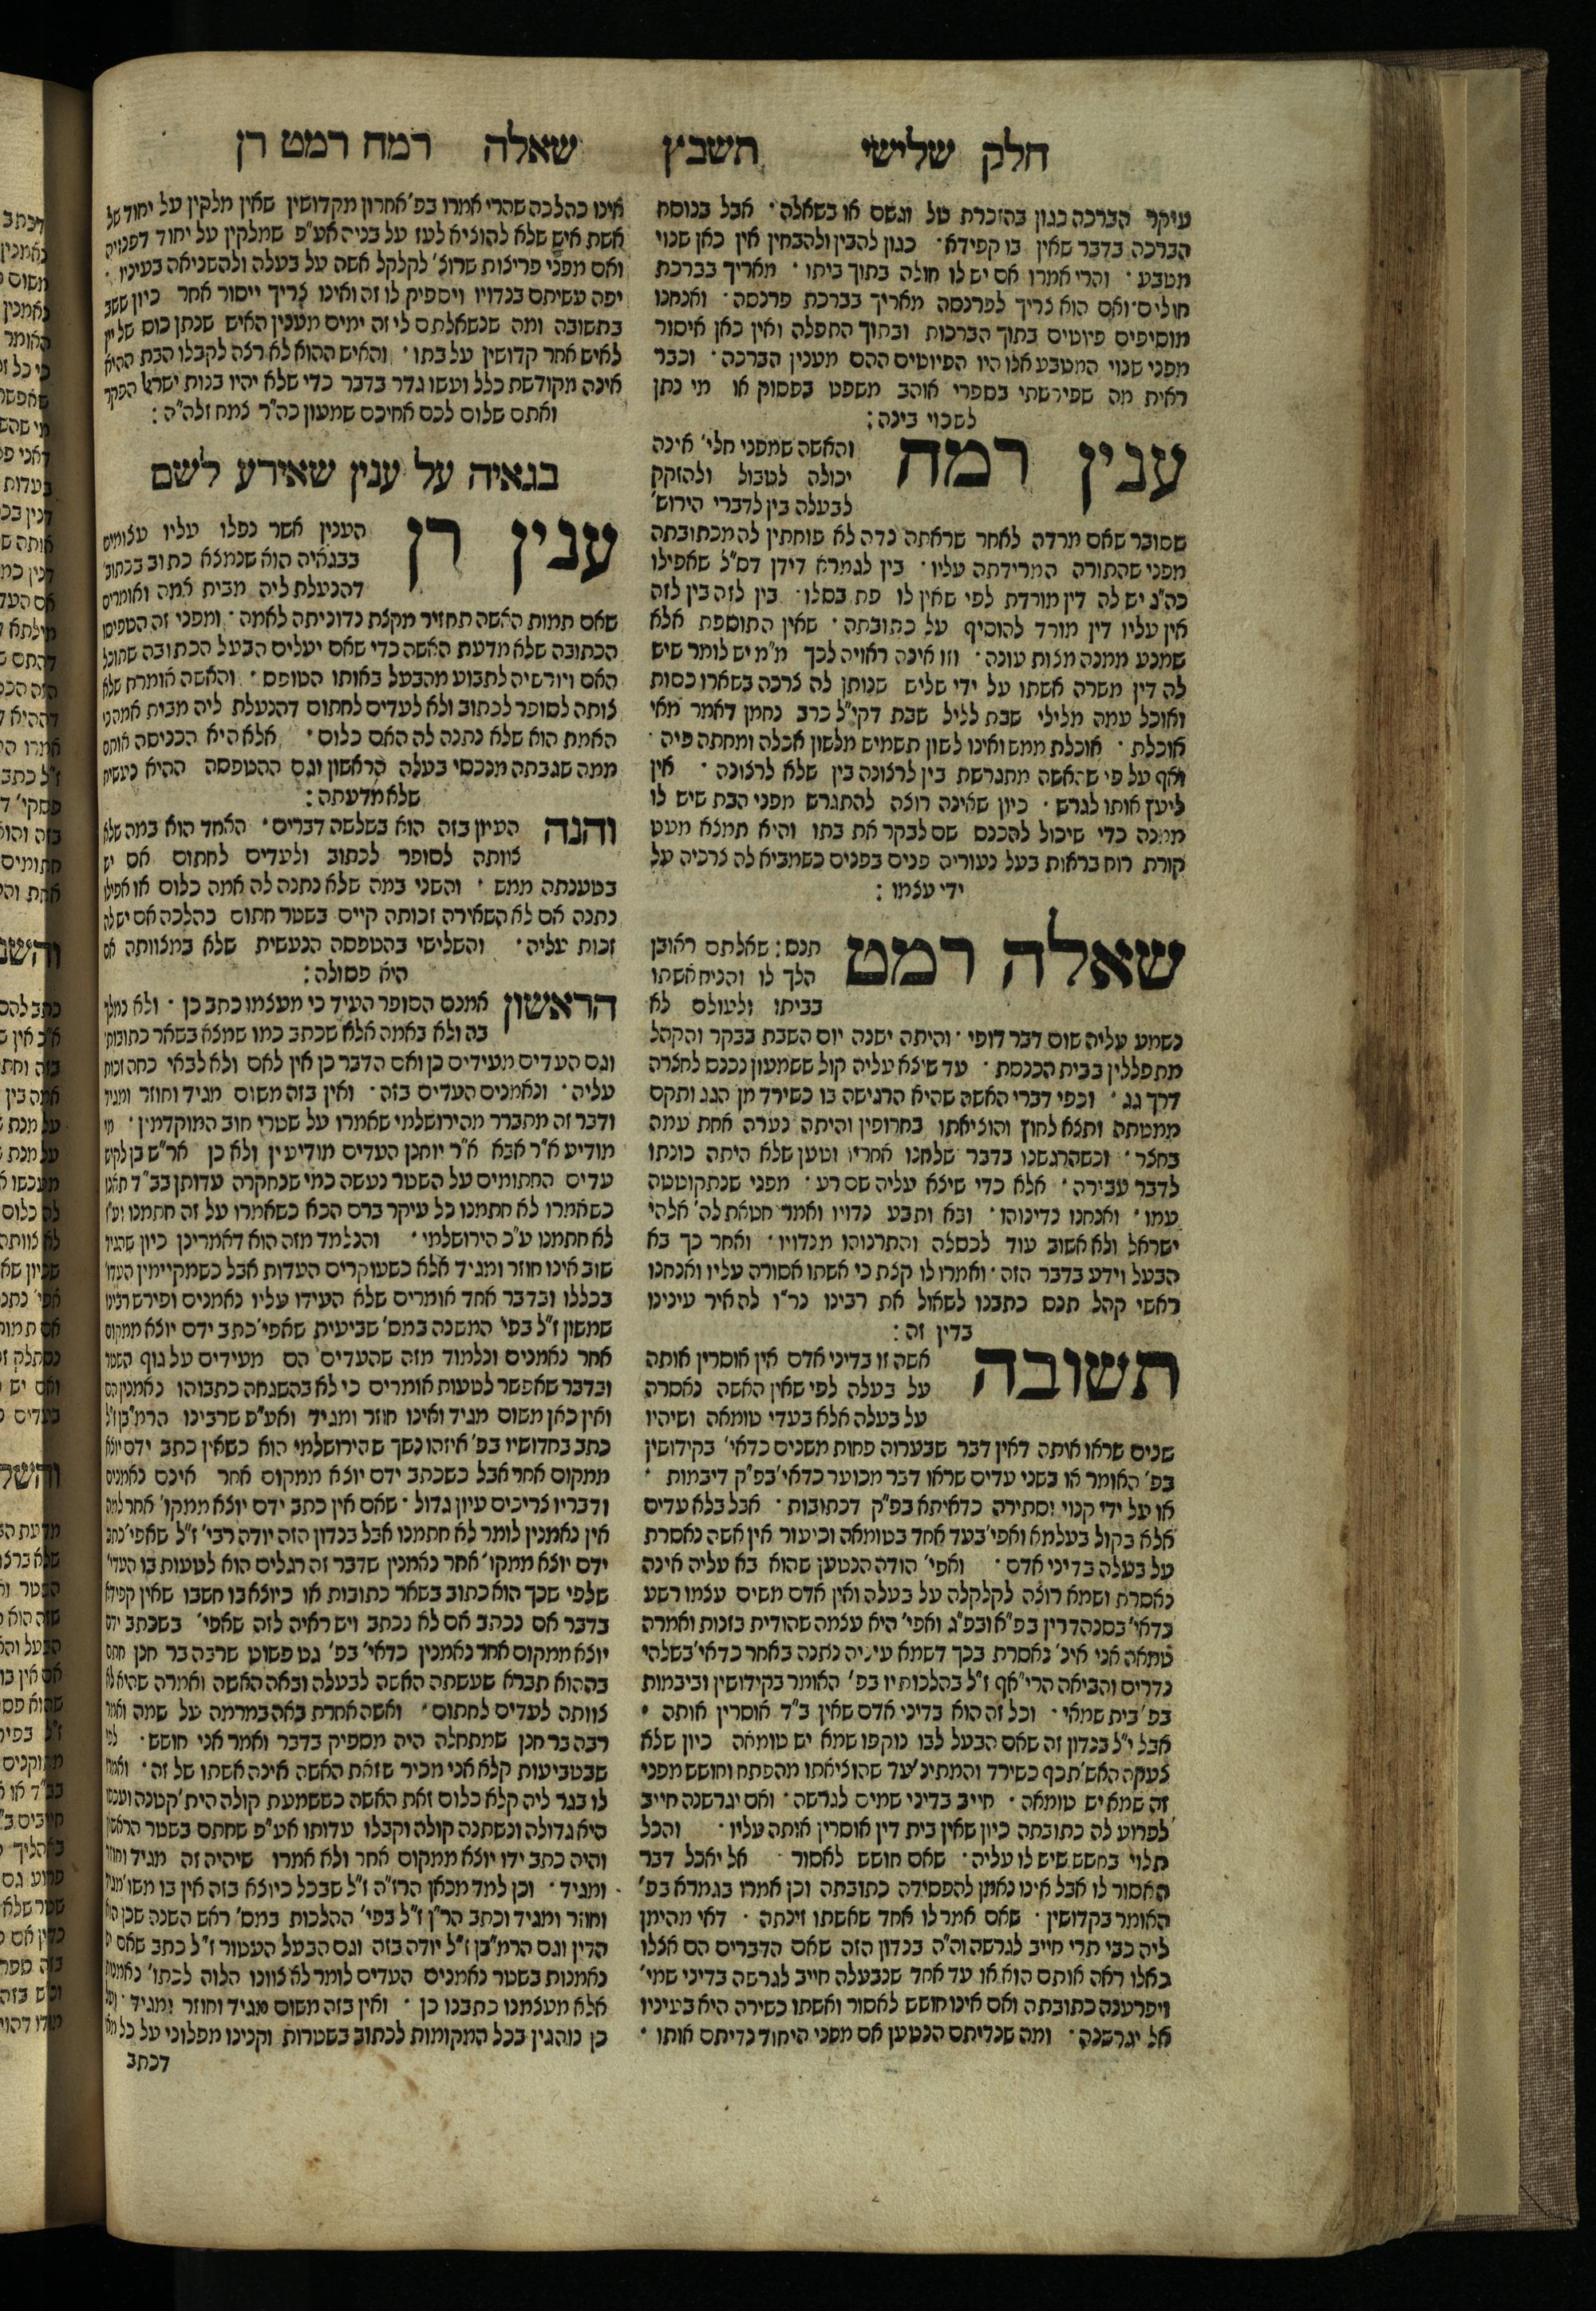 חלק שלישי תשבץ שאלה רמח רמט רן
עיקר הברכה כגון בהזכרת טל וגשם או בשאלה· אבל בנוסח
הברכה בדבר שאין בו קפידא· כגון להבין ולהבחין אין כאן שנוי
מטבע· והרי אמרו אם יש לו חולה בתוך ביתו· מאריך בברכת
חולים· ואם הוא צריך לפרנסה מאריך בברכת פרנסה· ואנחנו
מוסיפים פיוטים בתוך הברכות ובתוך התפלה ואין כאן איסור
מפני שנוי המטבע אלו היו הפיוטים ההם מענין הברכה· וכבר
ראית מה שפירשתי בספרי אוהב משפט בפסוק או מי נתן
לשכוי בינה:
ענין רמח והאשה שמפני חלי׳ אינה
יכולה לטבול ולהזקק
לבעלה בין לדברי הירוש׳
שסובר שאם מרדה לאחר שראתה נדה לא פוחתין לה מכתובתה
מפני שהתורה המרידתה עליו· בין לגמרא דידן דס״ל שאפילו
כה״ג יש לה דין מורדת לפי שאין לו פת בסלו· בין לזה בין לזה
אין עליו דין מורד להוסיף על כתובתה· שאין התוספת אלא
שמנע ממנה מצות עונה· וזו אינה ראויה לכך מ״מ יש לומר שיש
לה דין משרה אשתו על ידי שליש שנותן לה צרכה בשארו כסות
ואוכל עמה מלילי שבת לליל שבת דקי״ל כרב נחמן דאמר מאי
אוכלת· אוכלת ממש ואינו לשון תשמיש מלשון אכלה ומחתה פיה·
ואף על פי שהאשה מתגרשת בין לרצונה בין שלא לרצונה· אין
ליעץ אותו לגרש· כיון שאינה רוצה להתגרש מפני הבת שיש לו
ממנה כדי שיכול להכנס שם לבקר את בתו והיא תמצא מעט
קורת רוח בראות בעל נעוריה פנים בפנים כשמביא לה צרכיה על
ידי עצמו:
שאלה רמט תנס: שאלתם ראובן
הלך לו והניח אשתו
בביתו ולעולם לא
נשמע עליה שום דבר דופי· והיתה ישנה יום השבת בבקר והקהל
מתפללין בבית הכנסת· עד שיצא עליה קול ששמעון נכנס לחצרה
דרך גג· וכפי דברי האשה שהיא הרגישה בו כשירד מן הגג ותקם
ממטתה ותצא לחוץ והוציאתו בחרופין והיתה נערה אחת עמה
בחצר· וכשהרגשנו בדבר שלחנו אחריו וטען שלא היתה כונתו
לדבר עבירה· אלא כדי שיצא עליה שם רע· מפני שנתקוטטה
עמו· ואנחנו נדינוהו· ובא ותבע נדויו ואמר חטאת לה׳ אלהי
ישראל ולא אשוב עוד לכסלה והתרנוהו מנדויו· ואחר כך בא
הבעל וידע בדבר הזה· ואמרו לו קצת כי אשתו אסורה עליו ואנחנו
ראשי קהל תנס כתבנו לשאול את רבינו נר״ו להאיר עינינו
בדין זה:
תשובה אשה זו בדיני אדם אין אוסרין אותה
על בעלה לפי שאין האשה נאסרה
על בעלה אלא בעדי טומאה ושיהיו
שנים שראו אותה דאין דבר שבערוה פחות משנים כדאי׳ בקידושין
בפ׳ האומר או בשני עדים שראו דבר מכוער כדאי׳ בפ״ק דיבמות·
או על ידי קנוי וסתירה כדאיתא בפ״ק דכתובות· אבל בלא עדים
אלא בקול בעלמא ואפי׳ בעד אחד בטומאה וכיעור אין אשה נאסרת
על בעלה בדיני אדם· ואפי׳ הודה הנטען שהוא בא עליה אינה
נאסרת ושמא רוצה לקלקלה על בעלה ואין אדם משים עצמו רשע
כדאי׳ בסנהדרין בפ״א ובפ״ג ואפי׳ היא עצמה שהודית בזנות ואמרה
טמאה אני אינ׳ נאסרת בכך דשמא עיניה נתנה באחר כדאי׳ בשלהי
נדרים והביאה הרי״אף ז״ל בהלכותיו בפ׳ האומר בקידושין וביבמות
בפ׳ בית שמאי· וכל זה הוא בדיני אדם שאין ב״ד אוסרין אותה·
אבל י״ל בנדון זה שאם הבעל לבו נוקפו שמא יש טומאה כיון שלא
צעקה האש׳ תכף כשירד והמתינ׳ עד שהוציאתו מהפתח וחושש מפני
זה שמא יש טומאה· חייב בדיני שמים לגרשה· ואם יגרשנה חייב
לפרוע לה כתובתה כיון שאין בית דין אוסרין אותה עליו· והכל
תלוי בחשש שיש לו עליה· שאם חושש לאסור אל יאכל דבר
האסור לו אבל אינו נאמן להפסידה כתובתה וכן אמרו בגמרא בפ׳
האומר בקדושין· שאם אמר לו אחד שאשתו זינתה· דאי מהימן
ליה כבי תרי חייב לגרשה וה״ה בנדון הזה שאם הדברים הם אצלו
כאלו ראה אותם הוא או עד אחד שנבעלה חייב לגרשה בדיני שמי׳
ויפרענה כתובתה ואם אינו חושש לאסור ואשתו כשירה היא בעיניו
אל יגרשנה· ומה שנדיתם הנטען אם מפני היחוד נדיתם אותו·
אינו כהלכה שהרי אמרו בפ׳ אחרון מקדושין שאין מלקין על יחוד של
אשת איש שלא להוציא לעז על בניה אע״פ שמלקין על יחוד דפנויה
ואם מפני פריצות שרוצ׳ לקלקל אשה על בעלה ולהשניאה בעיניו·
יפה עשיתם בנדויו ויספיק לו זה ואינו צריך ייסור אחר כיון ששב
בתשובה ומה שנשאלתם לי זה ימים מענין האיש שנתן כוס של יין
לאיש אחר קדושין על בתו· והאיש ההוא לא רצה לקבלו הבת ההיא
אינה מקודשת כלל ועשו גדר בדבר כדי שלא יהיו בנות ישראל הפקר
ואתם שלום לכם אחיכם שמעון כה״ר צמח זלה״ה:
בגאיה על ענין שאירע לשם
ענין רן הענין אשר נפלו עליו עצומים
בבגאיה הוא שנמצא כתוב בכתוב׳
דהנעלת ליה מבית אמה ואומרים
שאם תמות האשה תחזיר מקצת נדוניתה לאמה· ומפני זה הטפיסו
הכתובה שלא מדעת האשה כדי שאם יעלים הבעל הכתובה שתוכל
האם ויורשיה לתבוע מהבעל באותו הטופס· והאשה אומרת שלא
צותה לסופר לכתוב ולא לעדים לחתום דהנעלת ליה מבית אמה כי
האמת הוא שלא נתנה לה האם כלום· אלא היא הכניסה אותם
ממה שגבתה מנכסי בעלה הראשון וגם ההטפסה ההיא נעשית
שלא מדעתה:
והנה העיון בזה הוא בשלשה דברים· האחד הוא במה שלא
צותה לסופר לכתוב ולעדים לחתום אם יש
בטענתה ממש· והשני במה שלא נתנה לה אמה כלום או אפילו
נתנה אם לא השאירה זכותה קיים בשטר חתום כהלכה אם יש לה
זכות עליה· והשלישי בהטפסה הנעשית שלא במצוותה אם
היא פסולה:
הראשון אמנם הסופר העיד כי מעצמו כתב כן· ולא נמלך
בה ולא באמה אלא שכתב כמו שמצא בשאר כתובות׳
וגם העדים מעידים כן ואם הדבר כן אין לאם ולא לבאי כחה זכות
עליה· ונאמנים העדים בזה· ואין בזה משום מגיד וחוזר ומגיד
ודבר זה מתברר מהירושלמי שאמרו על שטרי חוב המוקדמין· מי
מודיע א״ר אבא א״ר יוחנן העדים מודיעין ולא כן אר״ש בן לקיש
עדים החתומים על השטר נעשה כמי שנחקרה עדותן בב״ד תאנו
כשאמרו לא חתמנו כל עיקר ברם הכא כשאמרו על זה חתמנו וע״ז
לא חתמנו ע״כ הירושלמי· והנלמד מזה הוא דאמרינן כיון שהגיד
שוב אינו חוזר ומגיד אלא כשעוקרים העדות אבל כשמקיימין העדו׳
בכללו ובדבר אחד אומרים שלא העידו עליו נאמנים ופירש רבינו
שמשון ז״ל בפי׳ המשנה במס׳ שביעית שאפי׳ כתב ידם יוצא ממקום
אחר נאמנים ונלמוד מזה שהעדים הם מעידים על גוף השטר
ובדבר שאפשר לטעות אומרים כי לא בהשגחה כתבוהו נאמנין הם
ואין כאן משום מגיד ואינו חוזר ומגיד ואע״פ שרבינו הרמ״בן ז״ל
כתב בחדושיו בפ׳ איזהו נשך שהירושלמי הוא כשאין כתב ידם יוצא
ממקום אחר אבל כשכתב ידם יוצא ממקום אחר אינם נאמנים
ודבריו צריכים עיון גדול· שאם אין כתב ידם יוצא ממקו׳ אחר למה
אין נאמנין לומר לא חתמנו אבל בנדון הזה יודה רבי׳ ז״ל שאפי׳ כתב
ידם יוצא ממקו׳ אחר נאמנין שדבר זה רגלים הוא לטעות בו העדי׳
שלפי שכך הוא כתוב בשאר כתובות או כיוצא בו חשבו שאין קפידא
בדבר אם נכתב אם לא נכתב ויש ראיה לזה שאפי׳ בשכתב ידם
יוצא ממקום אחד נאמנין כדאי׳ בפ׳ גט פשוט שרבה בר חנן חתם
בההוא תברא שעשתה האשה לבעלה ובאה האשה ואמרה שהיא לא
צוותה לעדים לחתום· ואשה אחרת באה במרמה על שמה ואמר
רבה בר חנן שמתחלה היה מספיק בדבר ואמר אני חושש· לפי
שבטביעות קלא אני מכיר שזאת האשה אינה אשתו של זה· ואמרו
לו בגר ליה קלא כלום זאת האשה כששמעת קולה הית׳ קטנה ועכשו
היא גדולה ונשתנה קולה וקבלו עדותו אע״פ שחתם בשטר הראשון
והיה כתב ידו יוצא ממקום אחר ולא אמרו שיהיה זה מגיד וחוזר
ומגיד· וכן למד מכאן הרז״ה ז״ל שבכל כיוצא בזה אין בו משו׳ מגיד
וחוזר ומגיד וכתב הר״ן ז״ל בפי׳ ההלכות במס׳ ראש השנה שכן הוא
הדין וגם הרמ״בן ז״ל יודה בזה וגם הבעל העטור ז״ל כתב שאם יש
נאמנות בשטר נאמנים העדים לומר לא צוונו הלוה לכתו׳ נאמנות
אלא מעצמנו כתבנו כן· ואין בזה משום מגיד וחוזר ומגיד·
כן נוהגין בכל המקומות לכתוב בשטרות וקנינו מפלוני על כל מה
דכתב